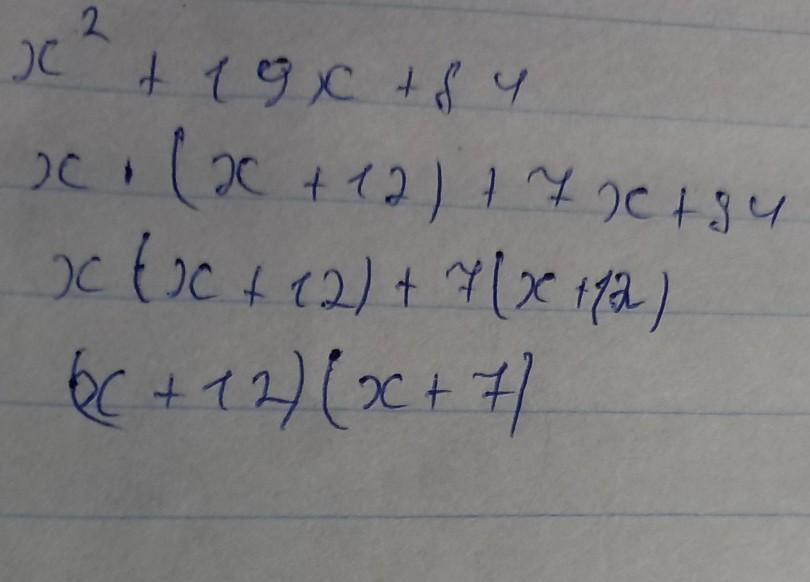 x² + 19x + 84
x · (x + 12) + 7x + 84
x (x + 12) + 7(x + 12)
(x + 12)(x + 7)